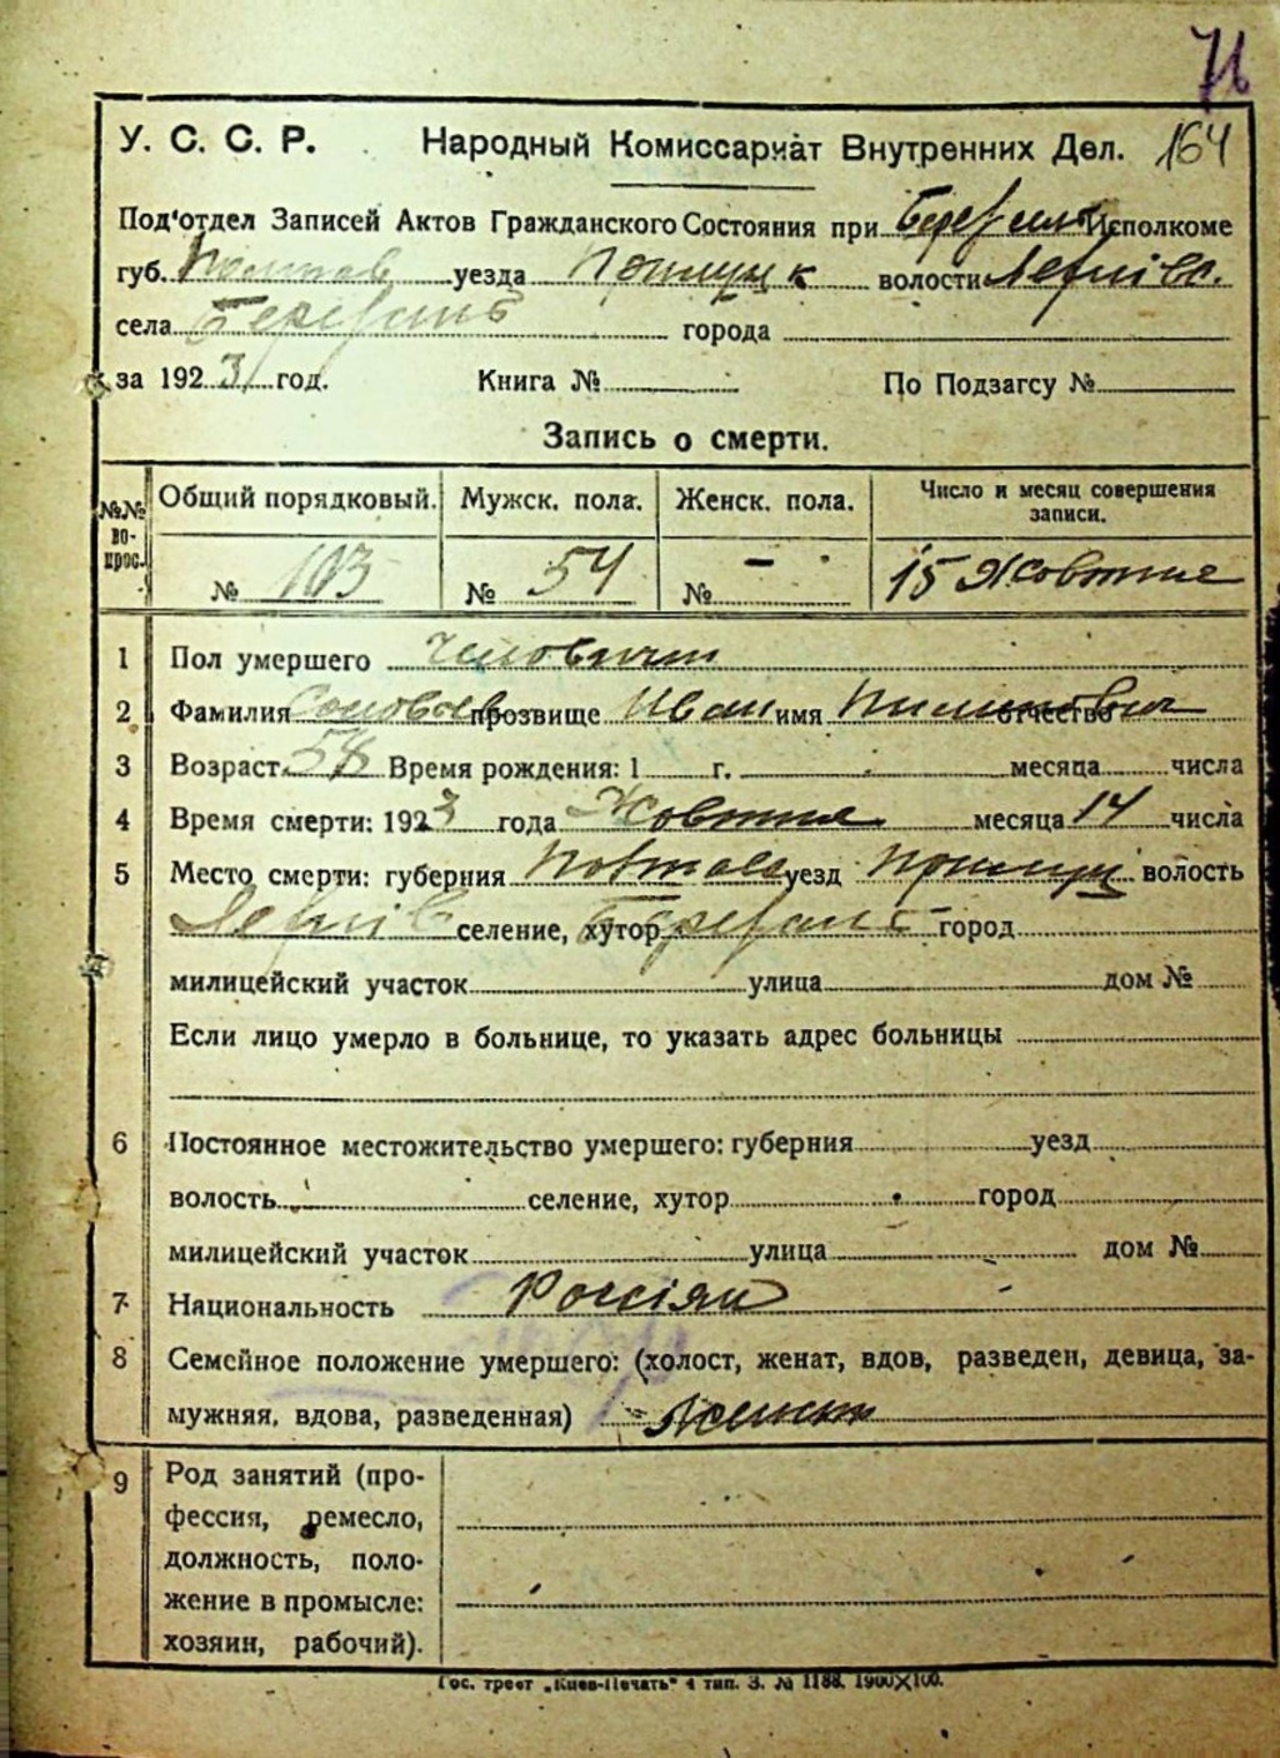 76
У. С. С. Р. Народный Комиссариат Внутренних Дел. 164
Под'отдел Записей Актов Гражданского Состояния при Исполкоме
губ. Полтав уезда Прилуцк волости
села города
за 1923 год. Книга № По Подзагсу №
Запись о смерти.
№№ вопрос. Общий порядковый. Мужск. пола. Женск. пола. Число и месяц совершения записи.
№ 103 № 54 № - 15 Жовтня
1 Пол умершего
2 Фамилия прозвище Иван имя отчество
3 Возраст 58 Время рождения: 1 г. месяца числа
4 Время смерти: 1923 года Жовтня месяца 14 числа
5 Место смерти: губерния Полтав уезд Прилуц волость
селение, хутор город
милицейский участок улица дом №
Если лицо умерло в больнице, то указать адрес больницы
6 Постоянное местожительство умершего: губерния уезд
волость селение, хутор город
милицейский участок улица дом №
7 Национальность Россіян
8 Семейное положение умершего: (холост, женат, вдов, разведен, девица, за-
мужняя, вдова, разведенная)
9 Род занятий (про-
фессия, ремесло,
должность, поло-
жение в промысле:
хозяин, рабочий).
Гос. трест „Киев-Печать" 4 тип. З. № 1188. 1900X100.